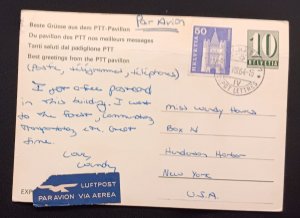 Par Avion
Beste Grüsse aus dem PTT-Pavillon
Du pavillon des PTT nos meilleurs messages
Tanti saluti dal padiglione PTT
Best greetings from the PTT pavilion
(Postes, télégrammes, téléphones)
I got a free postcard
in this building. I went
to the Forest, Commun,
Transportation, etc. Great
time.
Love,
50
HELVETIA
10
HELVETIA
Miss Wendy Hours
Box N
Henderson Harbor
New York
U.S.A.
LUFTPOST
PAR AVION VIA AEREA
EXP